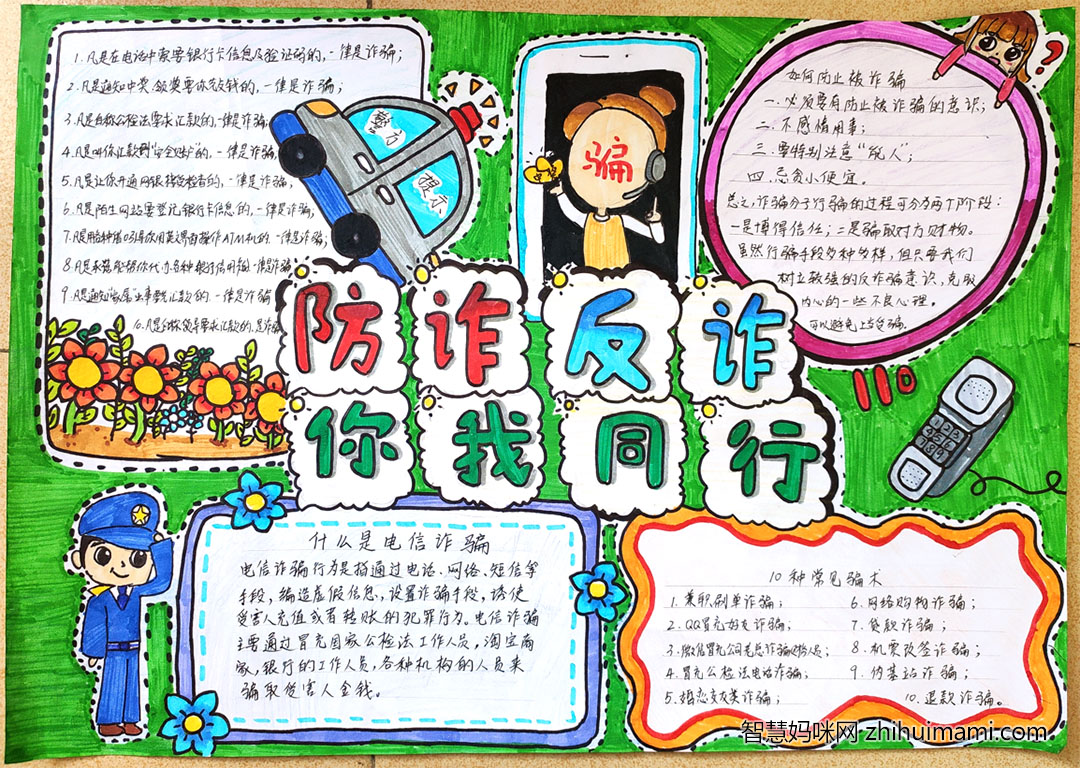 1.凡是在电话中索要银行卡信息及验证码的,一律是诈骗;
2.凡是通知中奖、领奖要你先交钱的,一律是诈骗;
3.凡是自称公检法要求汇款的,一律是诈骗;
4.凡是叫你汇款到"安全账户"的,一律是诈骗,
5.凡是让你开通网银接受检查的,一律是诈骗,
6.凡是陌生网站要登记银行卡信息的,一律是诈骗;
的,一律是诈骗;
一律是诈骗
9.凡是通知"家属"出事要汇款的,一律是诈骗
10.凡是自称领导要求汇款的,是诈骗
警方
提示
骗
如何防止被诈骗
一.必须要有防止被诈骗的意识;
二.不感情用事;
三.要特别注意"熟人";
四.忌贪小便宜。
总之,诈骗分子行骗的过程可分为两个阶段:
一是博得信任;二是骗取对方财物。
虽然行骗手段多种多样,但只要我们
树立较强的反诈骗意识,克服
内心的一些不良心理。
可以避免上当受骗.
?
防诈反诈
你我同行
110
1 2 3
4 5 6
7 8 9
什么是电信诈骗
电信诈骗行为是指通过电话、网络、短信等
手段,编造虚假信息,设置诈骗手段,诱使
受害人充值或者转账的犯罪行为。电信诈骗
主要通过冒充国家公检法工作人员,淘宝商
家,银行的工作人员,各种机构的人员来
骗取受害人金钱。
10种常见骗术
1.兼职刷单诈骗;
2.QQ冒充好友诈骗;
3.微信冒充公司老总诈骗人员;
4.冒充公检法电话诈骗;
5.婚恋交友类诈骗;
6.网络购物诈骗;
7.贷款诈骗;
8.机票改签诈骗;
9.伪基站诈骗;
10.退款诈骗。
智慧妈咪网 zhihuimami.com